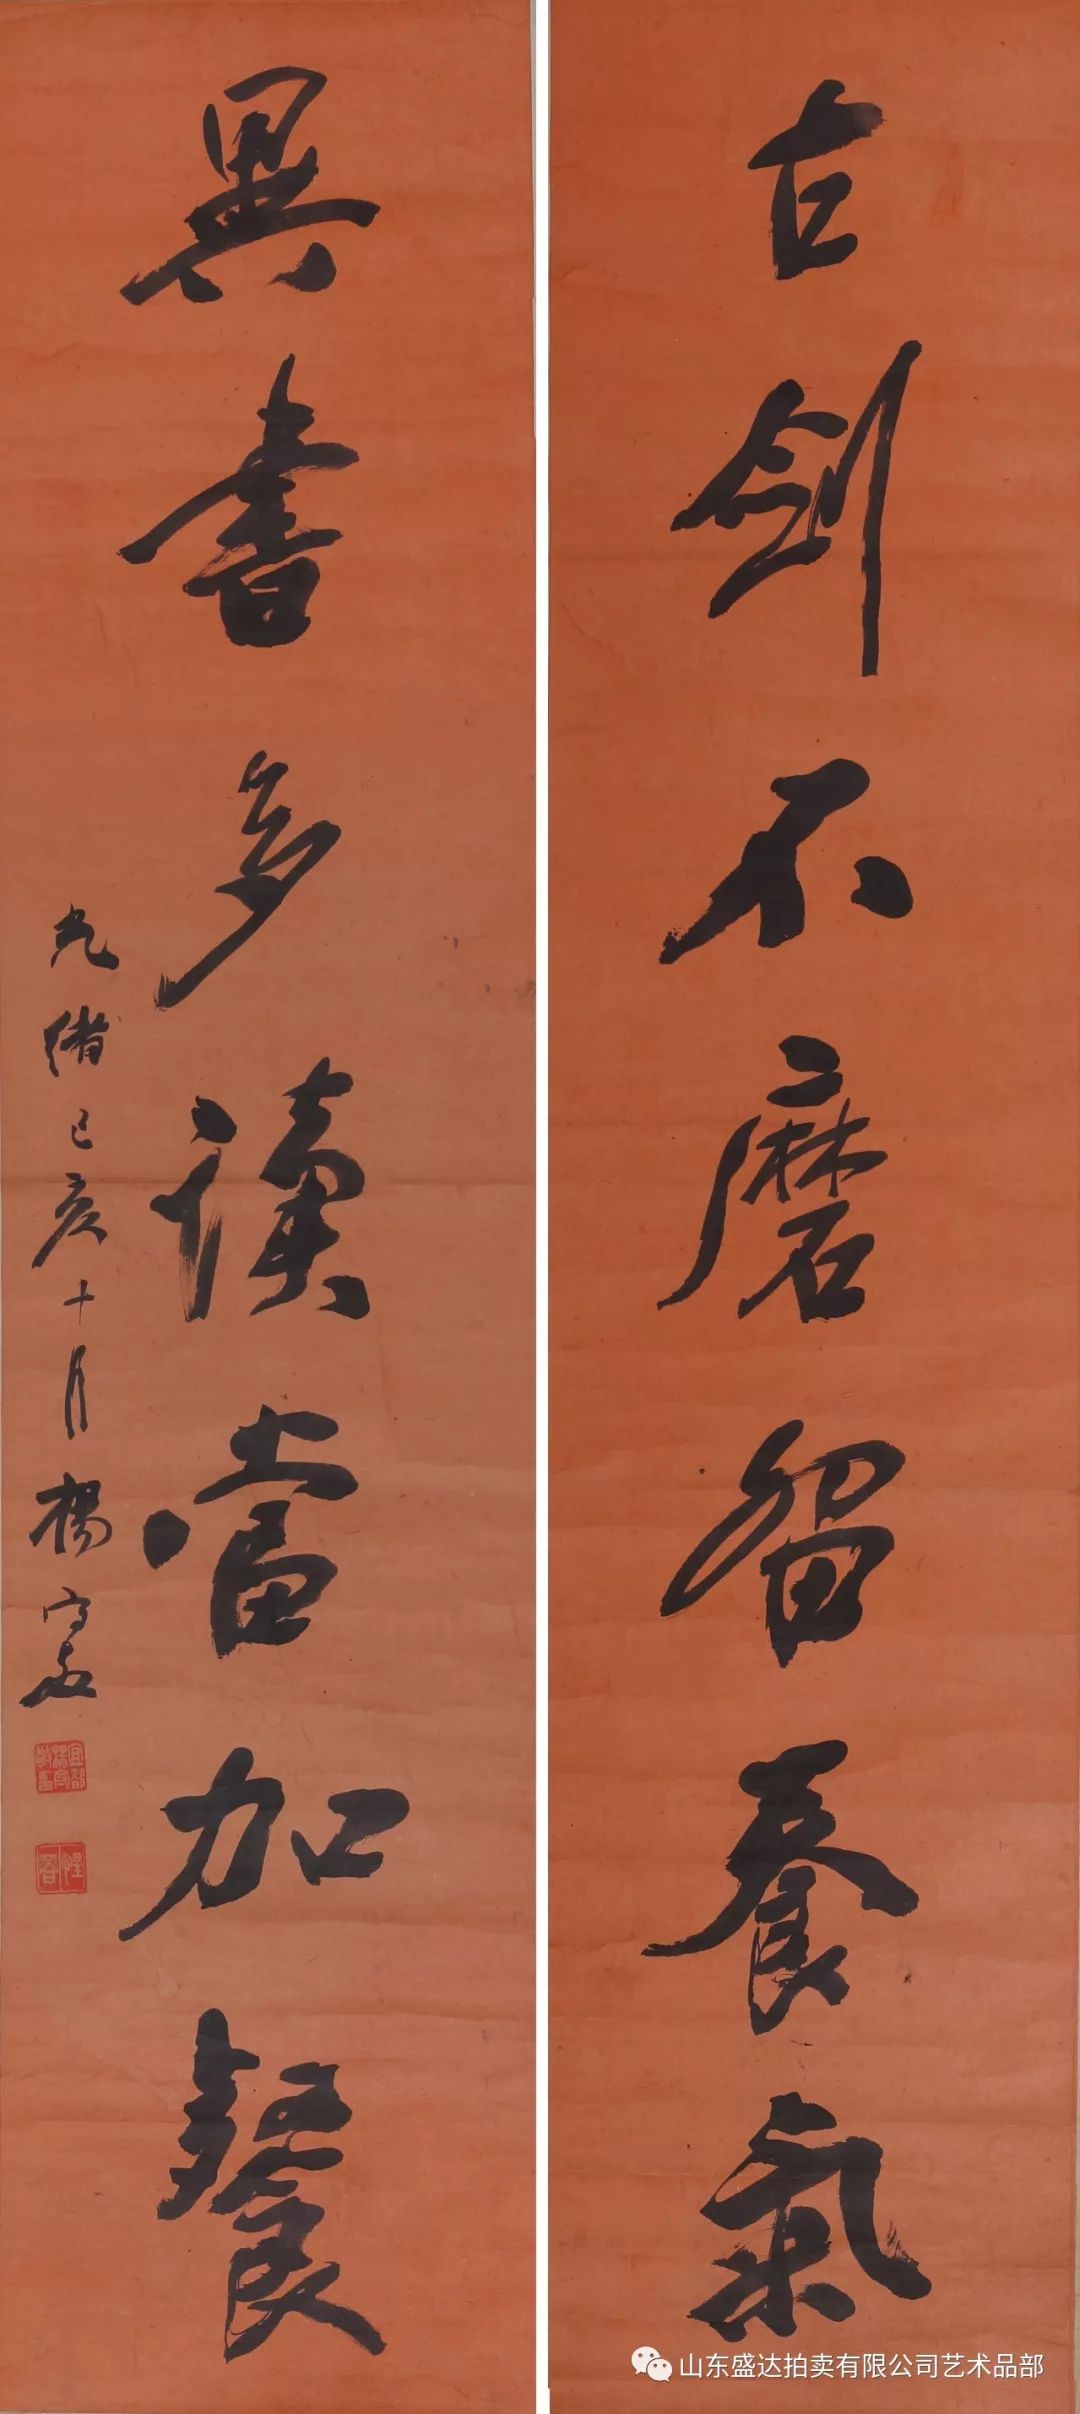 古劍不磨留養氣
異書多讀當加餐
光緒己亥十月楊守敬
宜都楊守敬印
惺吾
山东盛达拍卖有限公司艺术品部